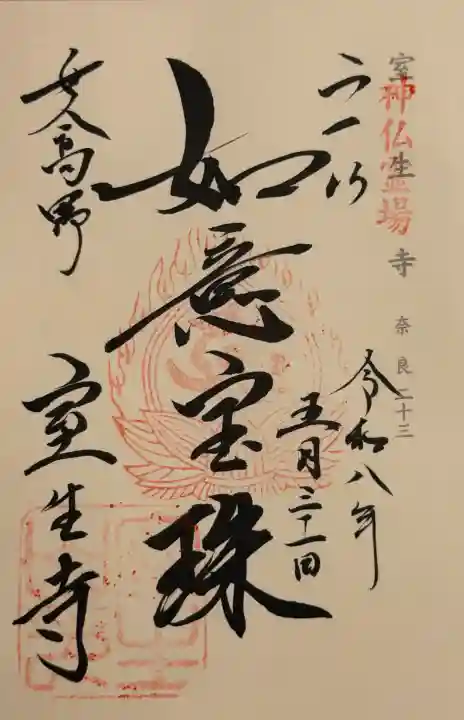 室生寺
奈良二十三
神仏霊場
奉拝
令和八年
五月三十一日
如意宝珠
女人高野
室生寺